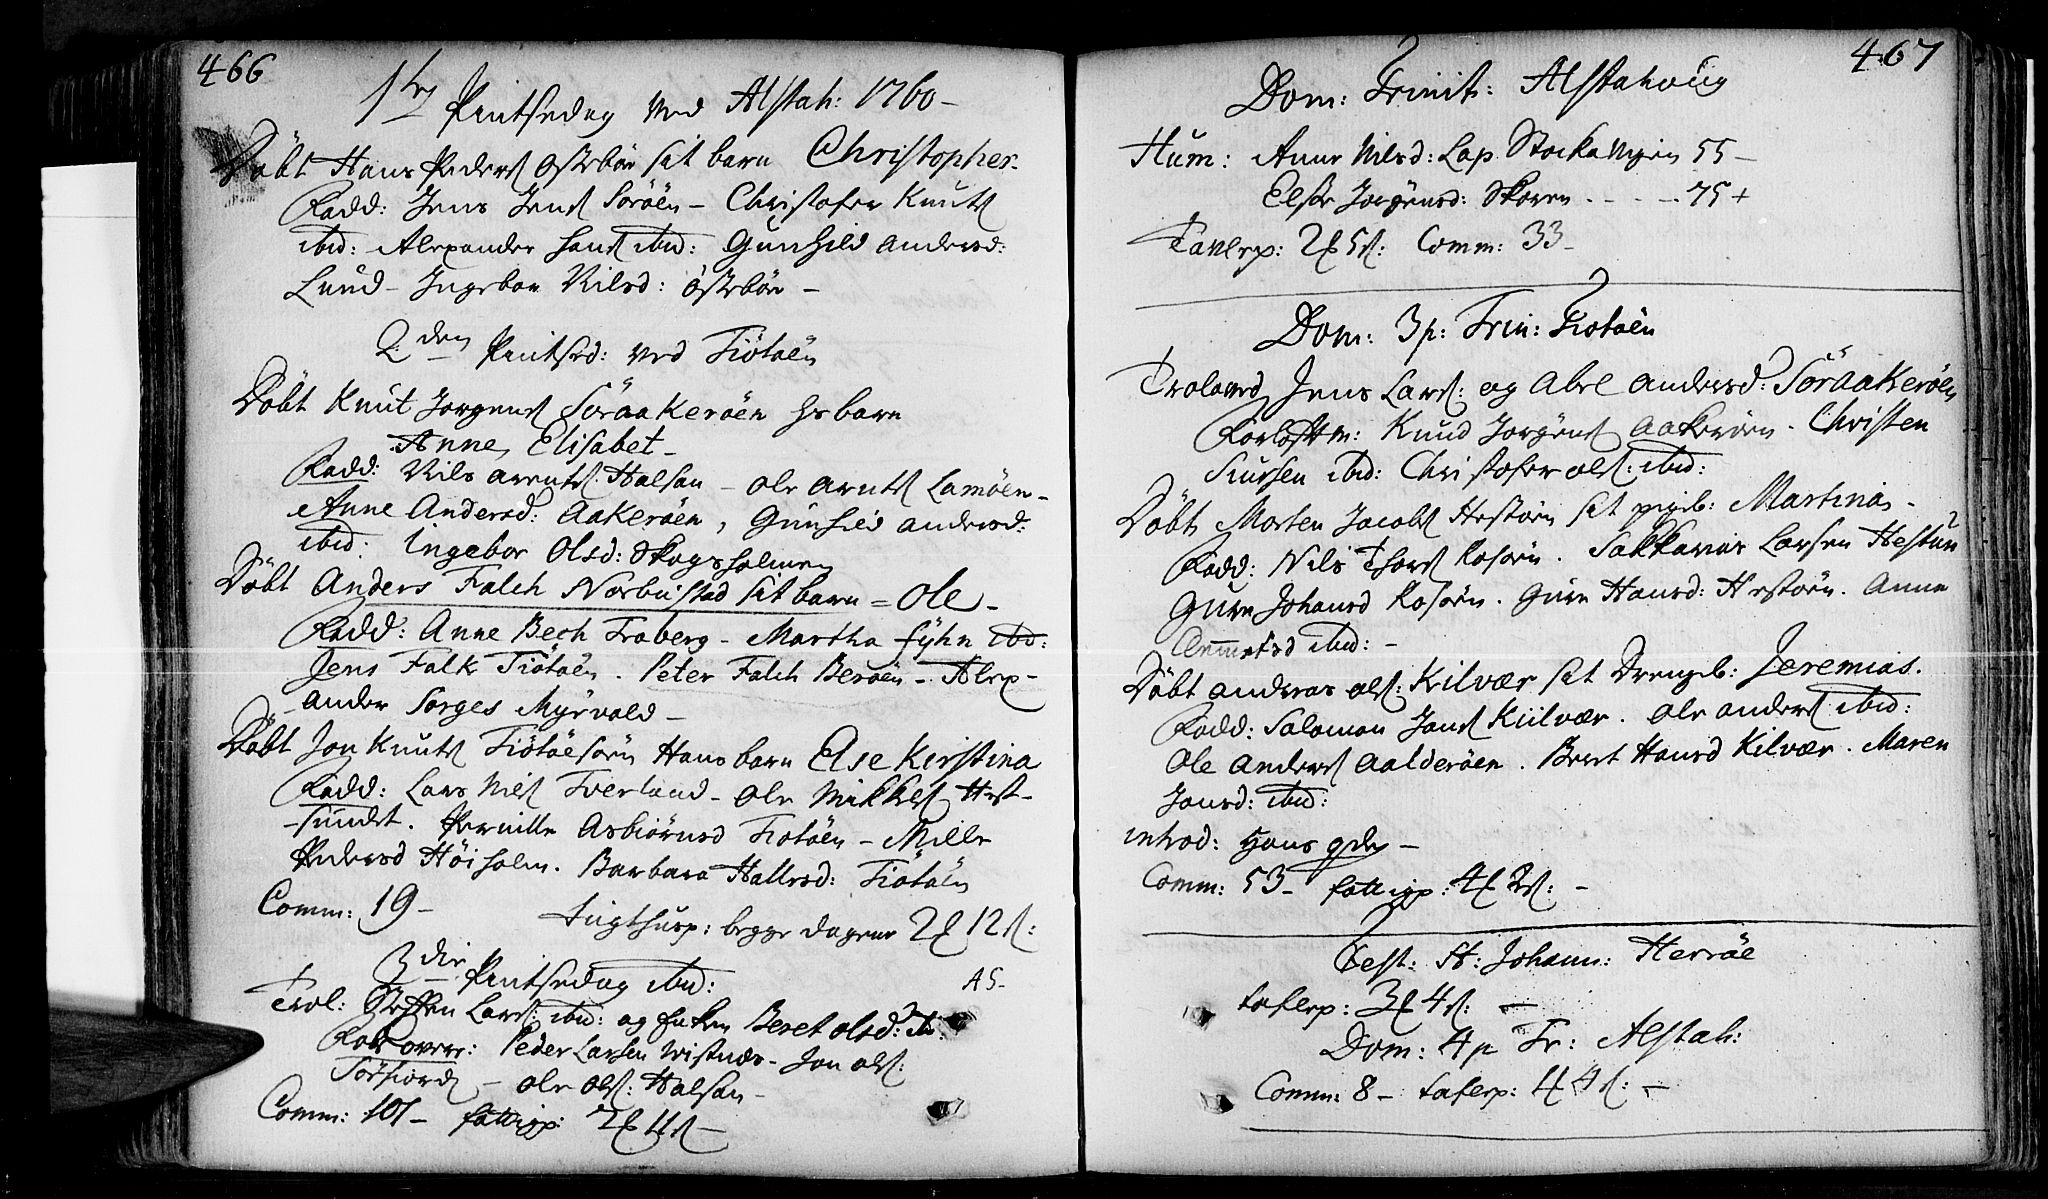 466
1ste Pintsedag ved Alstah: 1760 -
Döbt Hans Peders Østebøe sit barn Christopher.
Fadd: Jens Jens Söröen - Christofer Knuts
ibid: Alexander Jens ibid: Gunhild Andersd:
Lund - Ingebor Nilsd: Östebøe -
2den Pintsed: ved Tiötöen
Döbt Knut Jorgens Söraakeröen hs barn
Anne Elisabet -
Fadd: Nils Arents Halsan - Ole Arnts Lamöen -
Anne Andersd: Aakeröen, Gunhild Andersd:
ibid: Ingebor Olsd: Skogsholmen
Döbt Anders Falch Norbustad sit barn = Ole -
Fadd: Anne Bech Traberg - Martha Fyhn ibd:
Jens Falk Tiötöen. Peter Falch Beröen - Alex-
ander Sorges Myrvold -
Döbt Jon Knuts Tiötöesöen Hans barn Else Kirstina
Fadd: Lars Nils Tverland - Ole Mikkels Hest-
-sundet. Pernille Asbiörnsd Tiötöen - Mille
Pedersd Höiholm. Barbara Hallesd: Tiötöen
Comm: 19 - Tugthusp: begge dagene 2 12s:
3die Pintsedag ibid: A5-
Trol: Steffen Lars: ibid: og Enken Beret Olsd: ib:
Forlovere: Peder Larsen Wistnes - Jon Ols:
Torfiord - Ole Ols: Halsan -
Comm: 101 - fattigp: 2 11s -
467
Dom: Trinit: Alstahoug
Hum: Anne Nilsd: Lap. Stokavigen 55 -
Else Jorgensd: Skoren - - - - 75 +
Tavlep: 2 5s: Comm: 33 -
Dom: 3 p: Trin: Tiotöen
Troloved Jens Lars: og Abel Andersd: Söraakeröen
Forløftm: Knud Jorgens Aakeröen. Christen
Siursen ibid: Christofer Ols: ibid:
Döbt Morten Jacobs Hestöen sit pigeb: Martina -
Fadd: Nils Thors Rosöen. Sakkarias Larsen Hestun
Gure Johansd Rosöen. Gure Hansd: Hestöen. Anne
ibid: -
Döbt Andreas Ols: Kilvær sit Drengeb: Jeremias.
Fadd: Salomon Jons Kiilvær. Ole Anders ibid:
Ole Anders Aalderöen. Beret Hansd Kilvær. Maren
Jonsd: ibid:
introd: Hans qde -
Comm: 53 - fattigp: 4 2s: -
Fest: St: Johann: Herröe
taflep: 3 4s: -
Dom: 4 p Tr: Alstah:
Comm: 8 - taflep: 4s: -